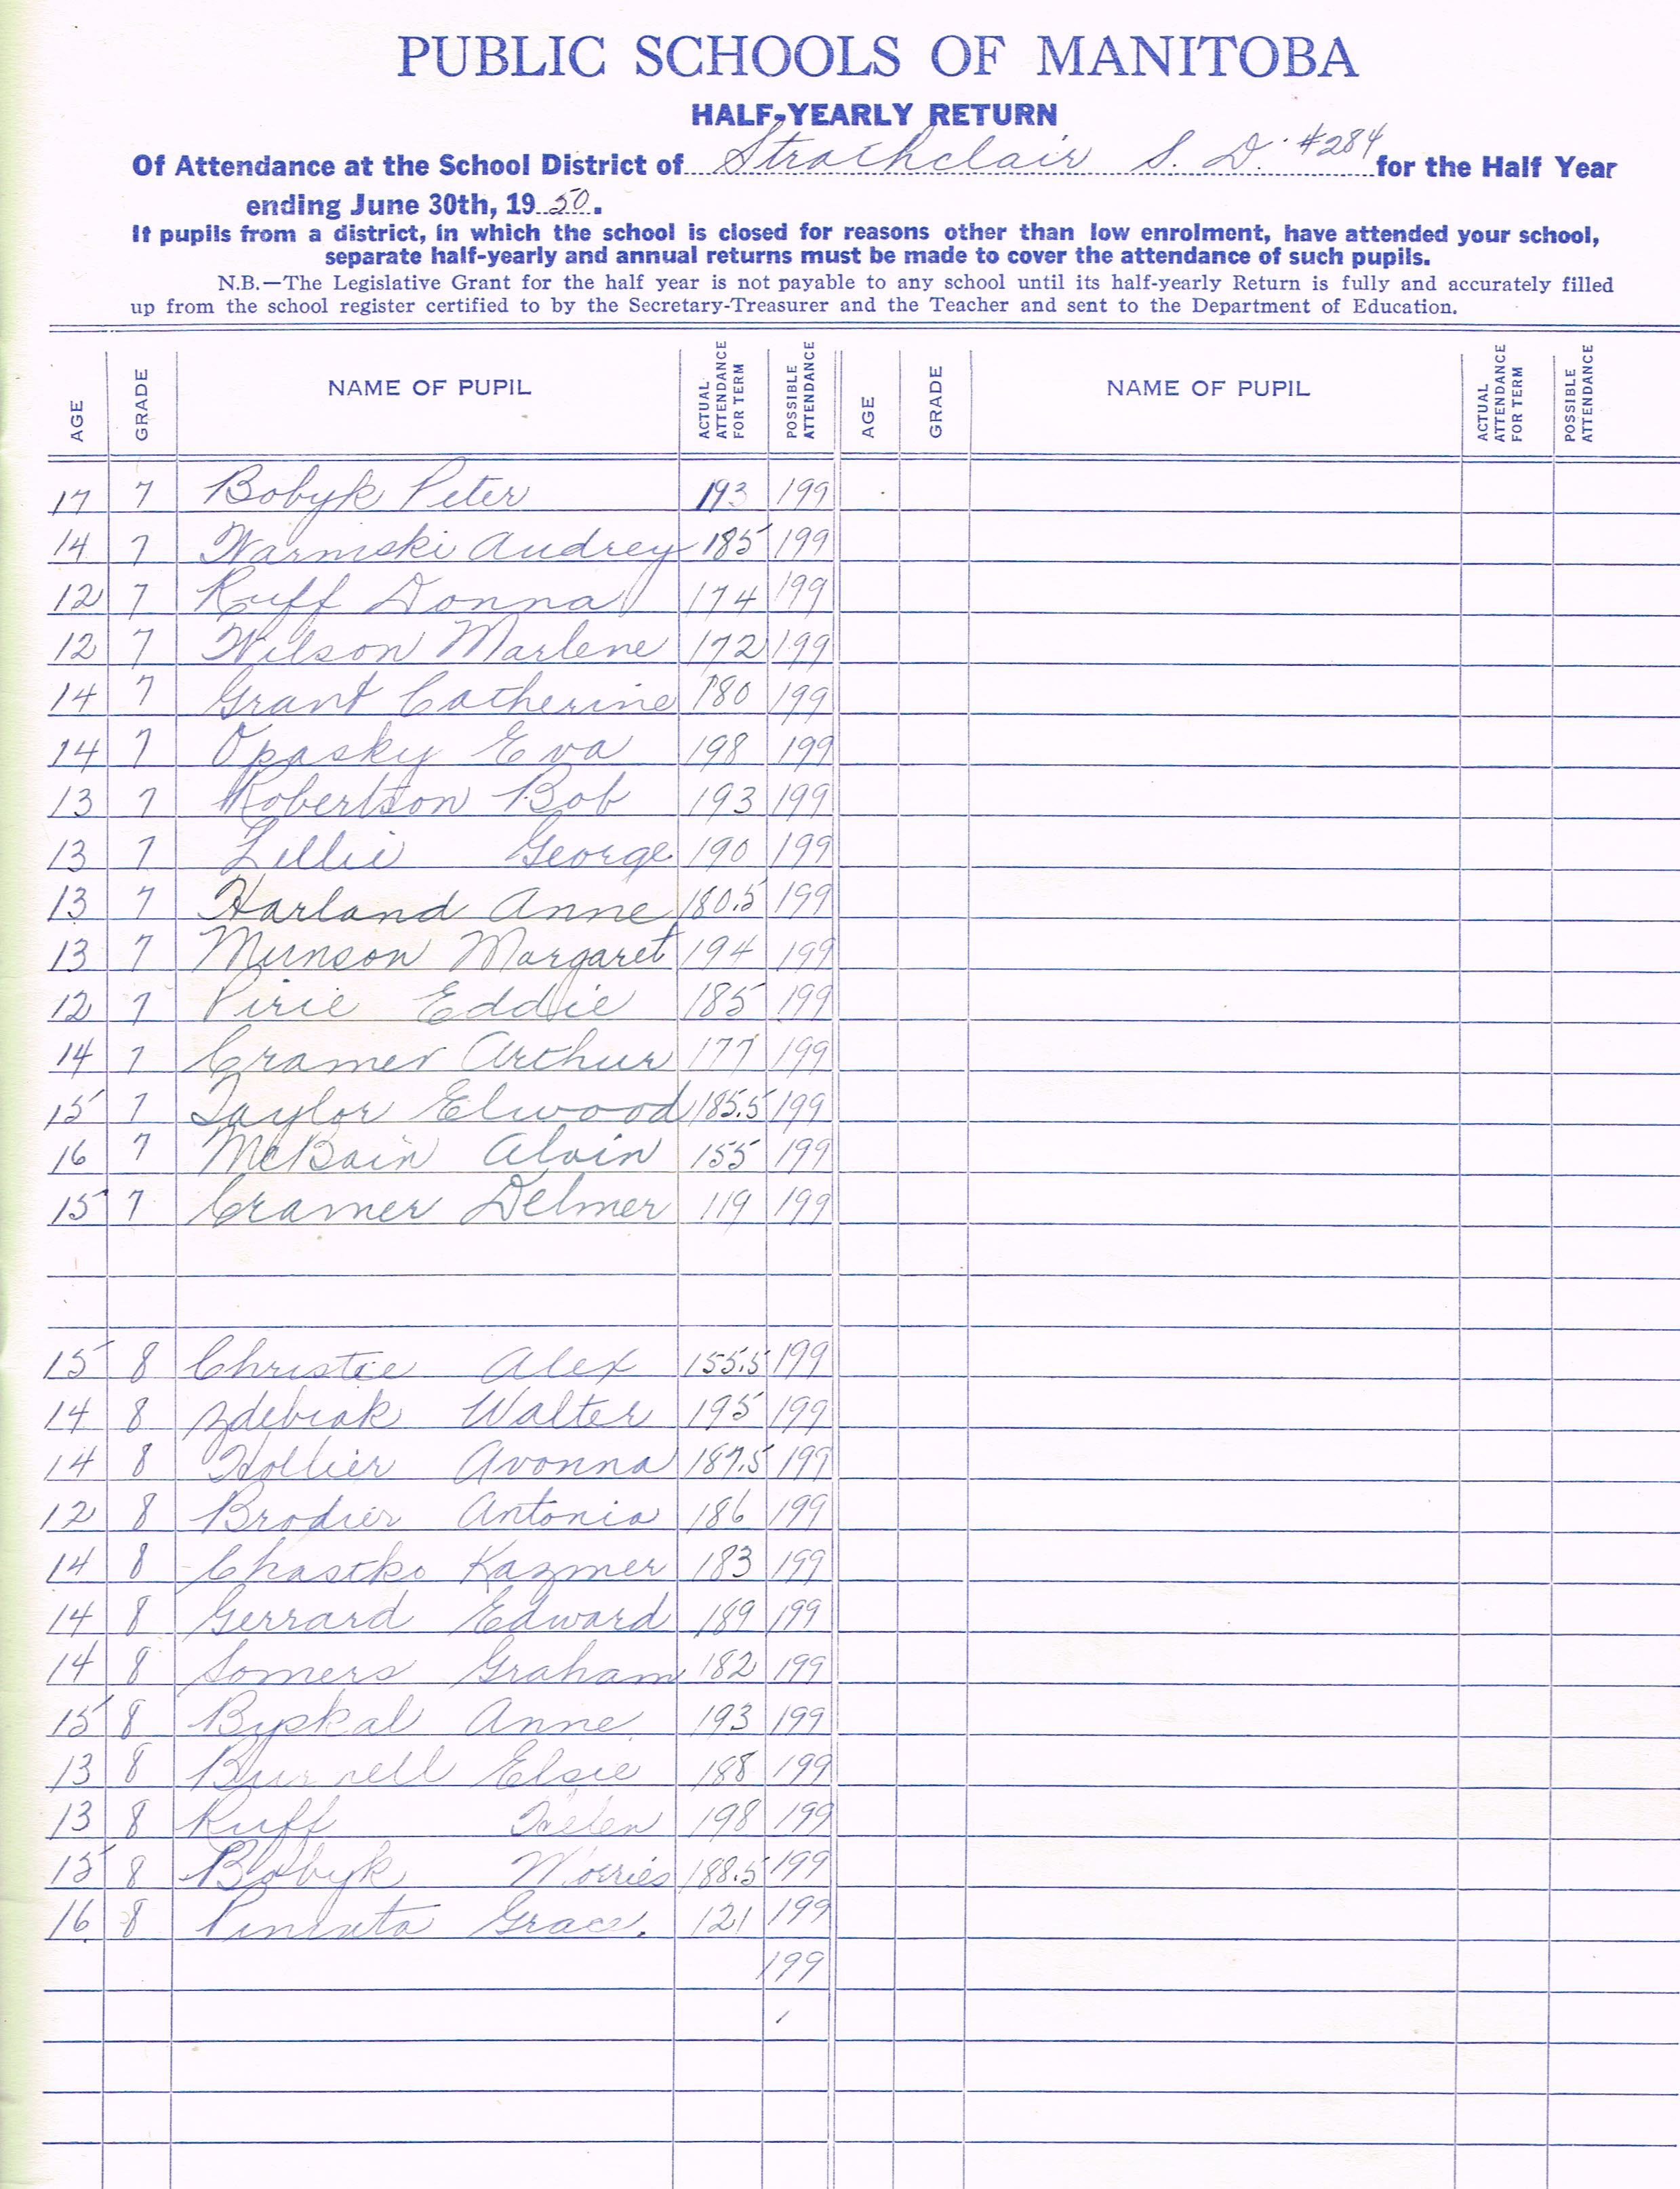 PUBLIC SCHOOLS OF MANITOBA
HALF-YEARLY RETURN
Of Attendance at the School District of Strathclair S. D. #284 for the Half Year
ending June 30th, 1950.
If pupils from a district, in which the school is closed for reasons other than low enrolment, have attended your school,
separate half-yearly and annual returns must be made to cover the attendance of such pupils.
N.B.—The Legislative Grant for the half year is not payable to any school until its half-yearly Return is fully and accurately filled
up from the school register certified to by the Secretary-Treasurer and the Teacher and sent to the Department of Education.
AGE GRADE NAME OF PUPIL ACTUAL ATTENDANCE FOR TERM POSSIBLE ATTENDANCE AGE GRADE NAME OF PUPIL ACTUAL ATTENDANCE FOR TERM POSSIBLE ATTENDANCE
17 7 Bobyk Peter 193 199
14 7 Audrey 185 199
12 7 Ruff Donna 174 199
12 7 Wilson Marlene 172 199
14 7 Grant Catherine 180 199
14 7 Opasky Eva 198 199
13 7 Robertson Bob 193 199
13 7 Lillie George 190 199
13 7 Harland Anne 180.5 199
13 7 Munson Margaret 194 199
12 7 Pirie Eddie 185 199
14 7 Cramer Arthur 177 199
15 7 Taylor Elwood 185.5 199
16 7 McBain Alvin 155 199
15 7 Cramer Delmer 119 199
15 8 Christie Alex 155.5 199
14 8 Zdebiak Walter 195 199
14 8 Hollier Avonna 187.5 199
12 8 Brodier Antonia 186 199
14 8 Chastko Kazmer 183 199
14 8 Gerrard Edward 189 199
14 8 Somers Graham 182 199
15 8 Byskal Anne 193 199
13 8 Burnell Elsie 188 199
13 8 Ruff Helen 198 199
15 8 Bobyk Morries 188.5 199
16 8 Grace. 121 199
199